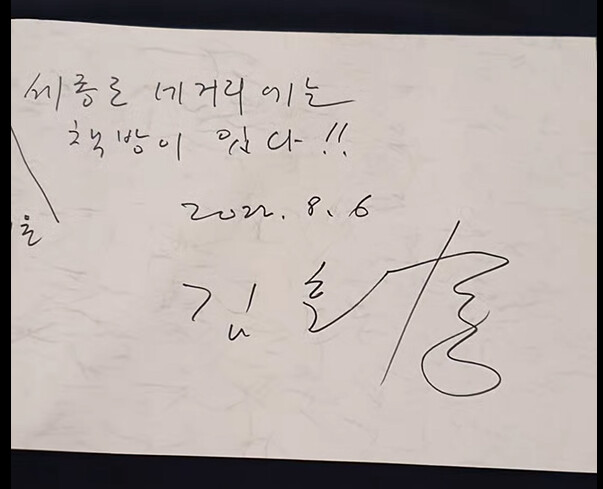 세종로 네거리에는
책방이 있다!!
2022. 8. 6
김훈